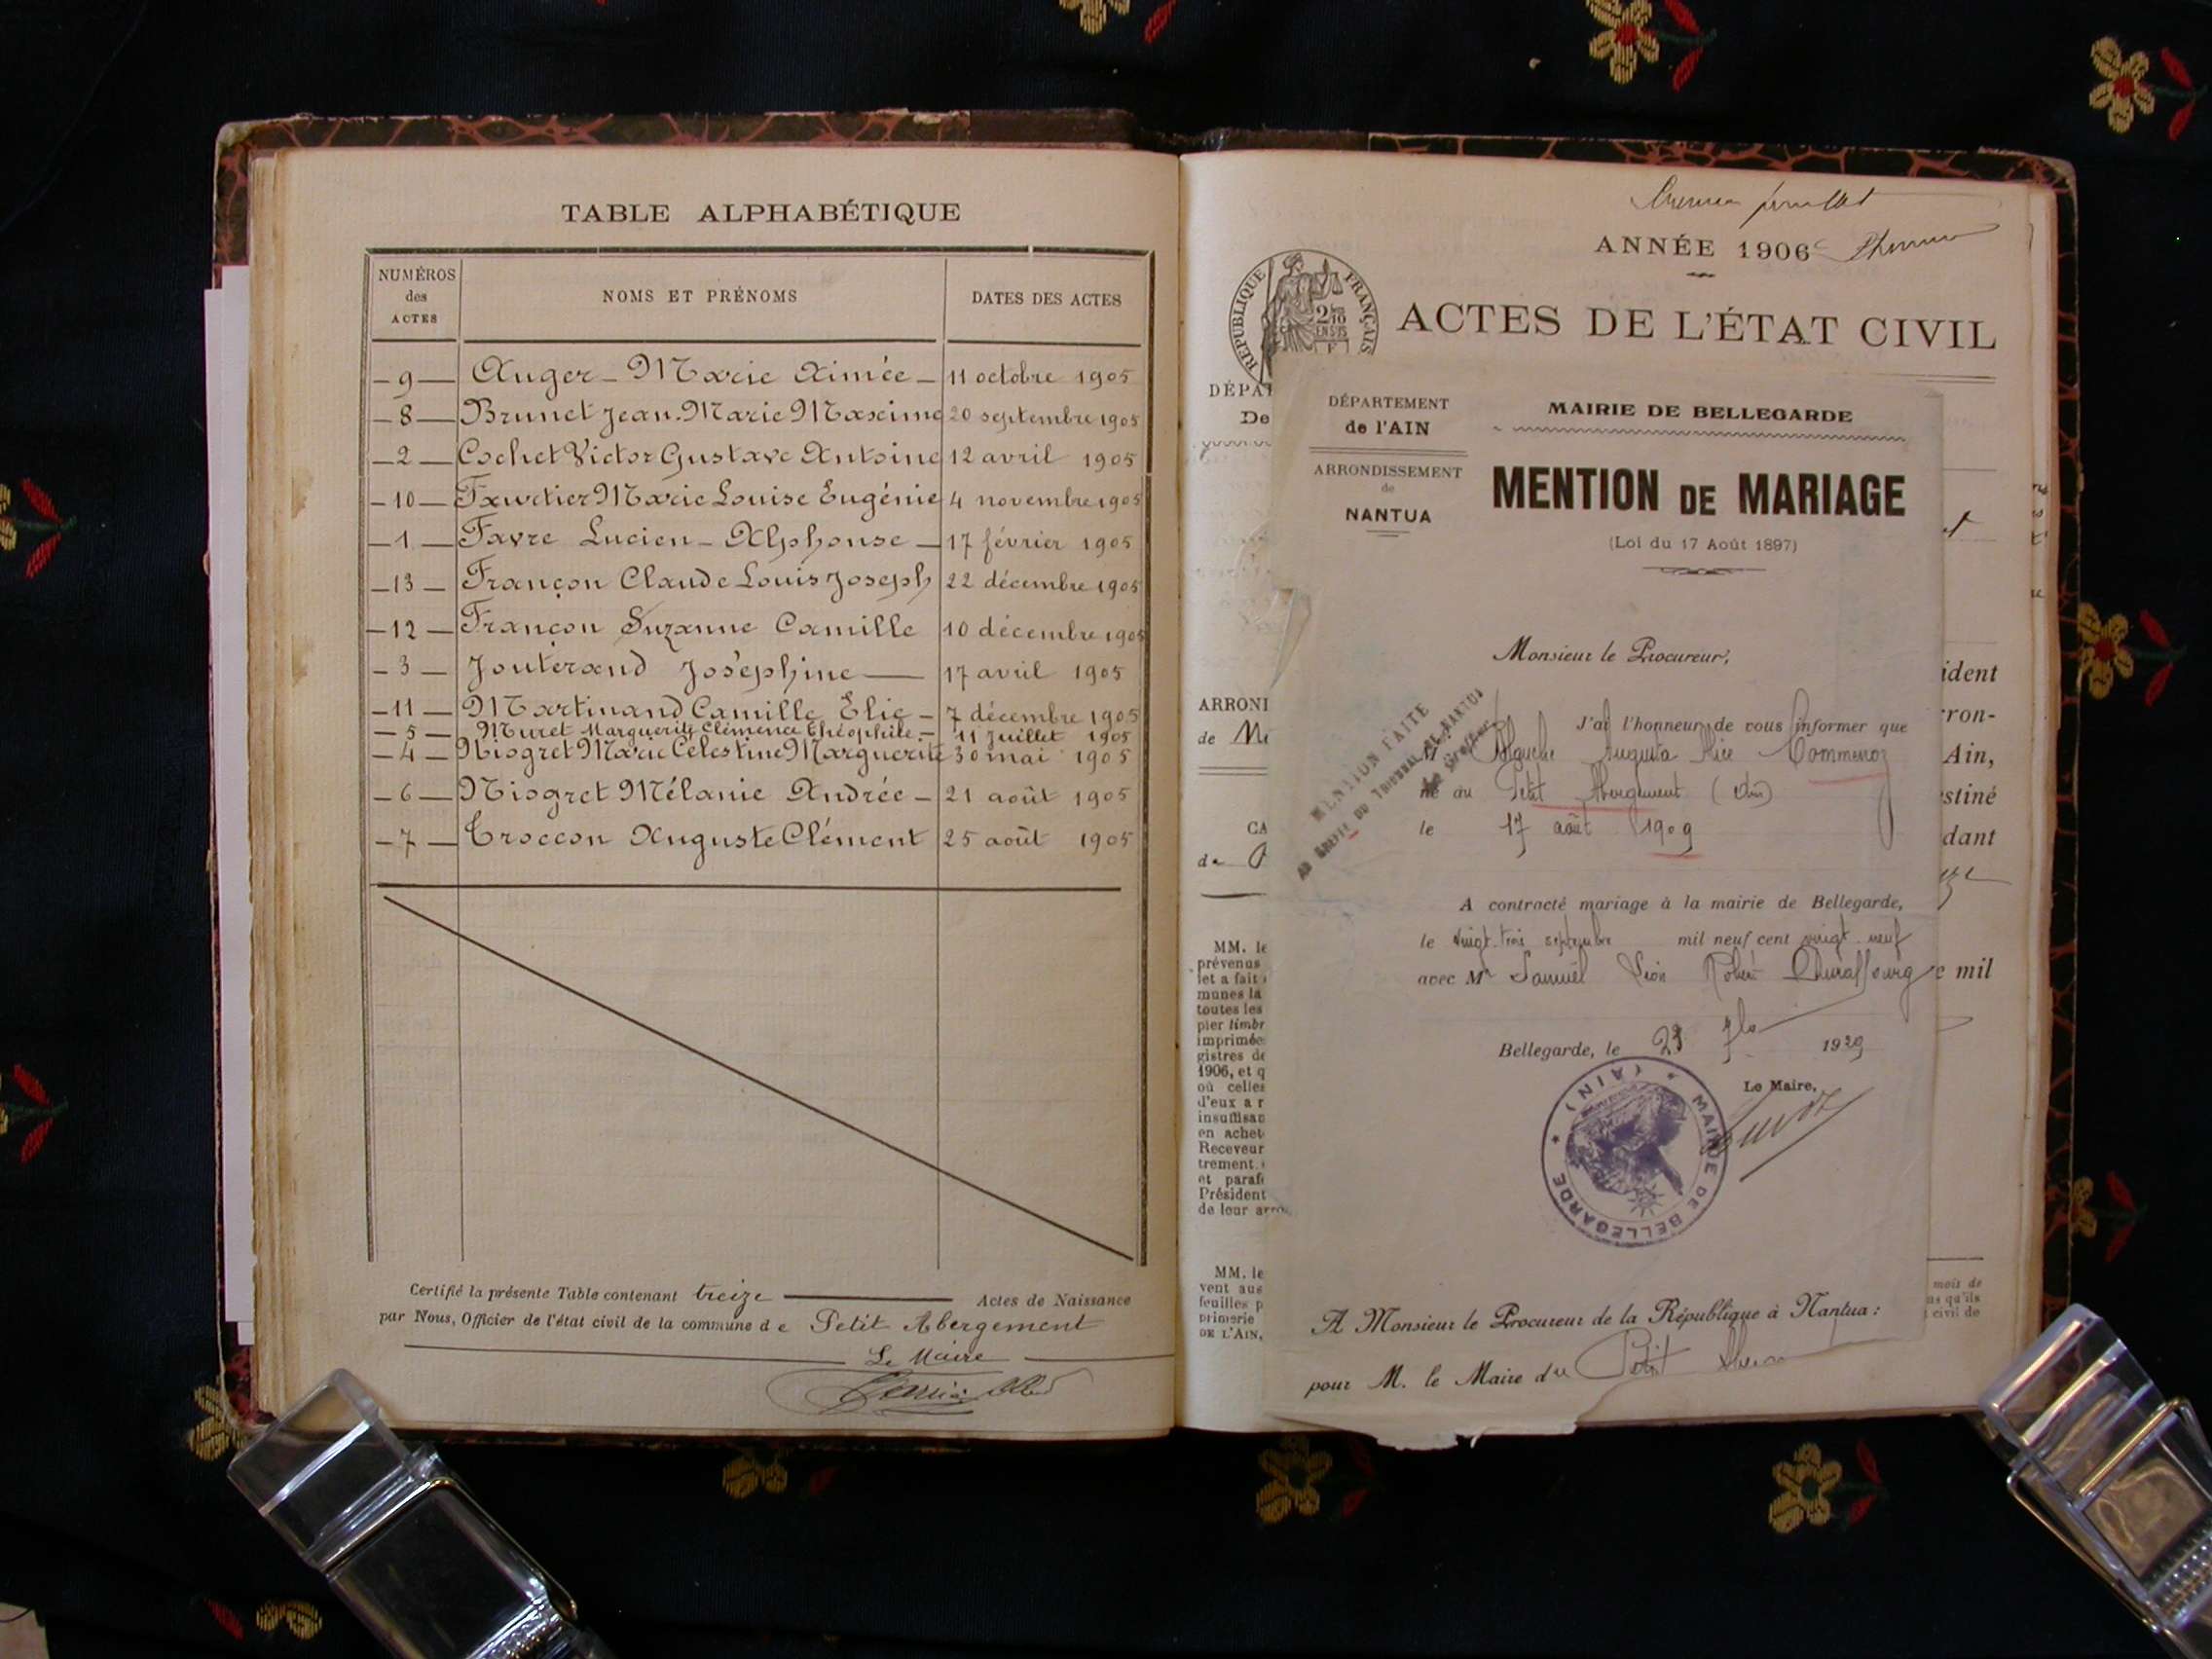 TABLE ALPHABÉTIQUE
NUMÉROS des ACTES
NOMS ET PRÉNOMS
DATES DES ACTES
9 Auger Marie Aimée 11 octobre 1905
8 Brunet Jean Marie Maxime 20 septembre 1905
2 Cochet Victor Gustave Antoine 12 avril 1905
10 Marie Louise Eugénie 4 novembre 1905
1 Favre Lucien Alphonse 17 février 1905
13 Françon Claude Louis Joseph 22 décembre 1905
12 Françon Suzanne Camille 10 décembre 1905
3 Jouterand Joséphine 17 avril 1905
11 Martinand Camille Élie 7 décembre 1905
5 Muret Marguerite Clémence Théophile 11 Juillet 1905
4 Niogret Marie Célestine Marguerite 30 mai 1905
6 Niogret Mélanie Andrée 21 août 1905
7 Troccon Auguste Clément 25 août 1905
Certifié la présente Table contenant treize Actes de Naissance
par Nous, Officier de l'état civil de la commune de Petit Abergement
Le Maire
premier feuillet
ANNÉE 1906
RÉPUBLIQUE FRANÇAIS
ACTES DE L'ÉTAT CIVIL
DÉPA
De
ARRONDI
de
CA
de
MM. le
prévenus
let a fait
munes la
toutes les
pier timbr
imprimée
gistres de
1906, et q
où celles
d'eux a r
insuffisan
en achet
Receveur
trement
et parafé
Président
de leur arro
MM. le
vent aus
feuilles p
primerie
DE L'AIN,
ident
rron-
Ain,
estiné
dant
mil
mois de
as qu'ils
civil de
DÉPARTEMENT
de l'AIN
ARRONDISSEMENT
de
NANTUA
MAIRIE DE BELLEGARDE
MENTION DE MARIAGE
(Loi du 17 Août 1897)
Monsieur le Procureur,
MENTION FAITE
AU GREFFE DU TRIBUNAL DE NANTUA
Le Greffier
J'ai l'honneur de vous informer que
Blanche Augusta Alice Commenoz
né au Petit Abergement (Ain)
le 17 août 1909
A contracté mariage à la mairie de Bellegarde,
le vingt trois septembre mil neuf cent vingt neuf
avec Mr Samuël Léon Robert Duraffourg
Bellegarde, le 23 7bre 1929
Le Maire,
MAIRIE DE BELLEGARDE (AIN)
A Monsieur le Procureur de la République à Nantua :
pour M. le Maire du Petit